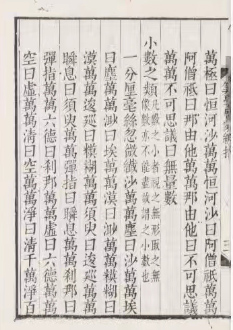 萬極曰恒河沙萬萬恒河沙曰阿僧祇萬萬
阿僧祇曰那由他萬萬那由他曰不可思議
萬萬不可思議曰無量數
小數之類
凡數之小者視之無形取之無
像數亦不能盡議謂之小數也
一分厘毫絲忽微纖沙萬萬塵曰沙萬萬埃
曰塵萬萬渺曰埃萬萬漠曰渺萬萬糢糊曰
漠萬萬逡巡曰模糊萬萬須臾曰逡巡萬萬
瞬息曰須臾萬萬彈指曰瞬息萬萬剎那曰
彈指萬萬六德曰剎那萬萬虛曰六德萬萬
空曰虛萬萬清曰空萬萬淨曰清千萬淨百